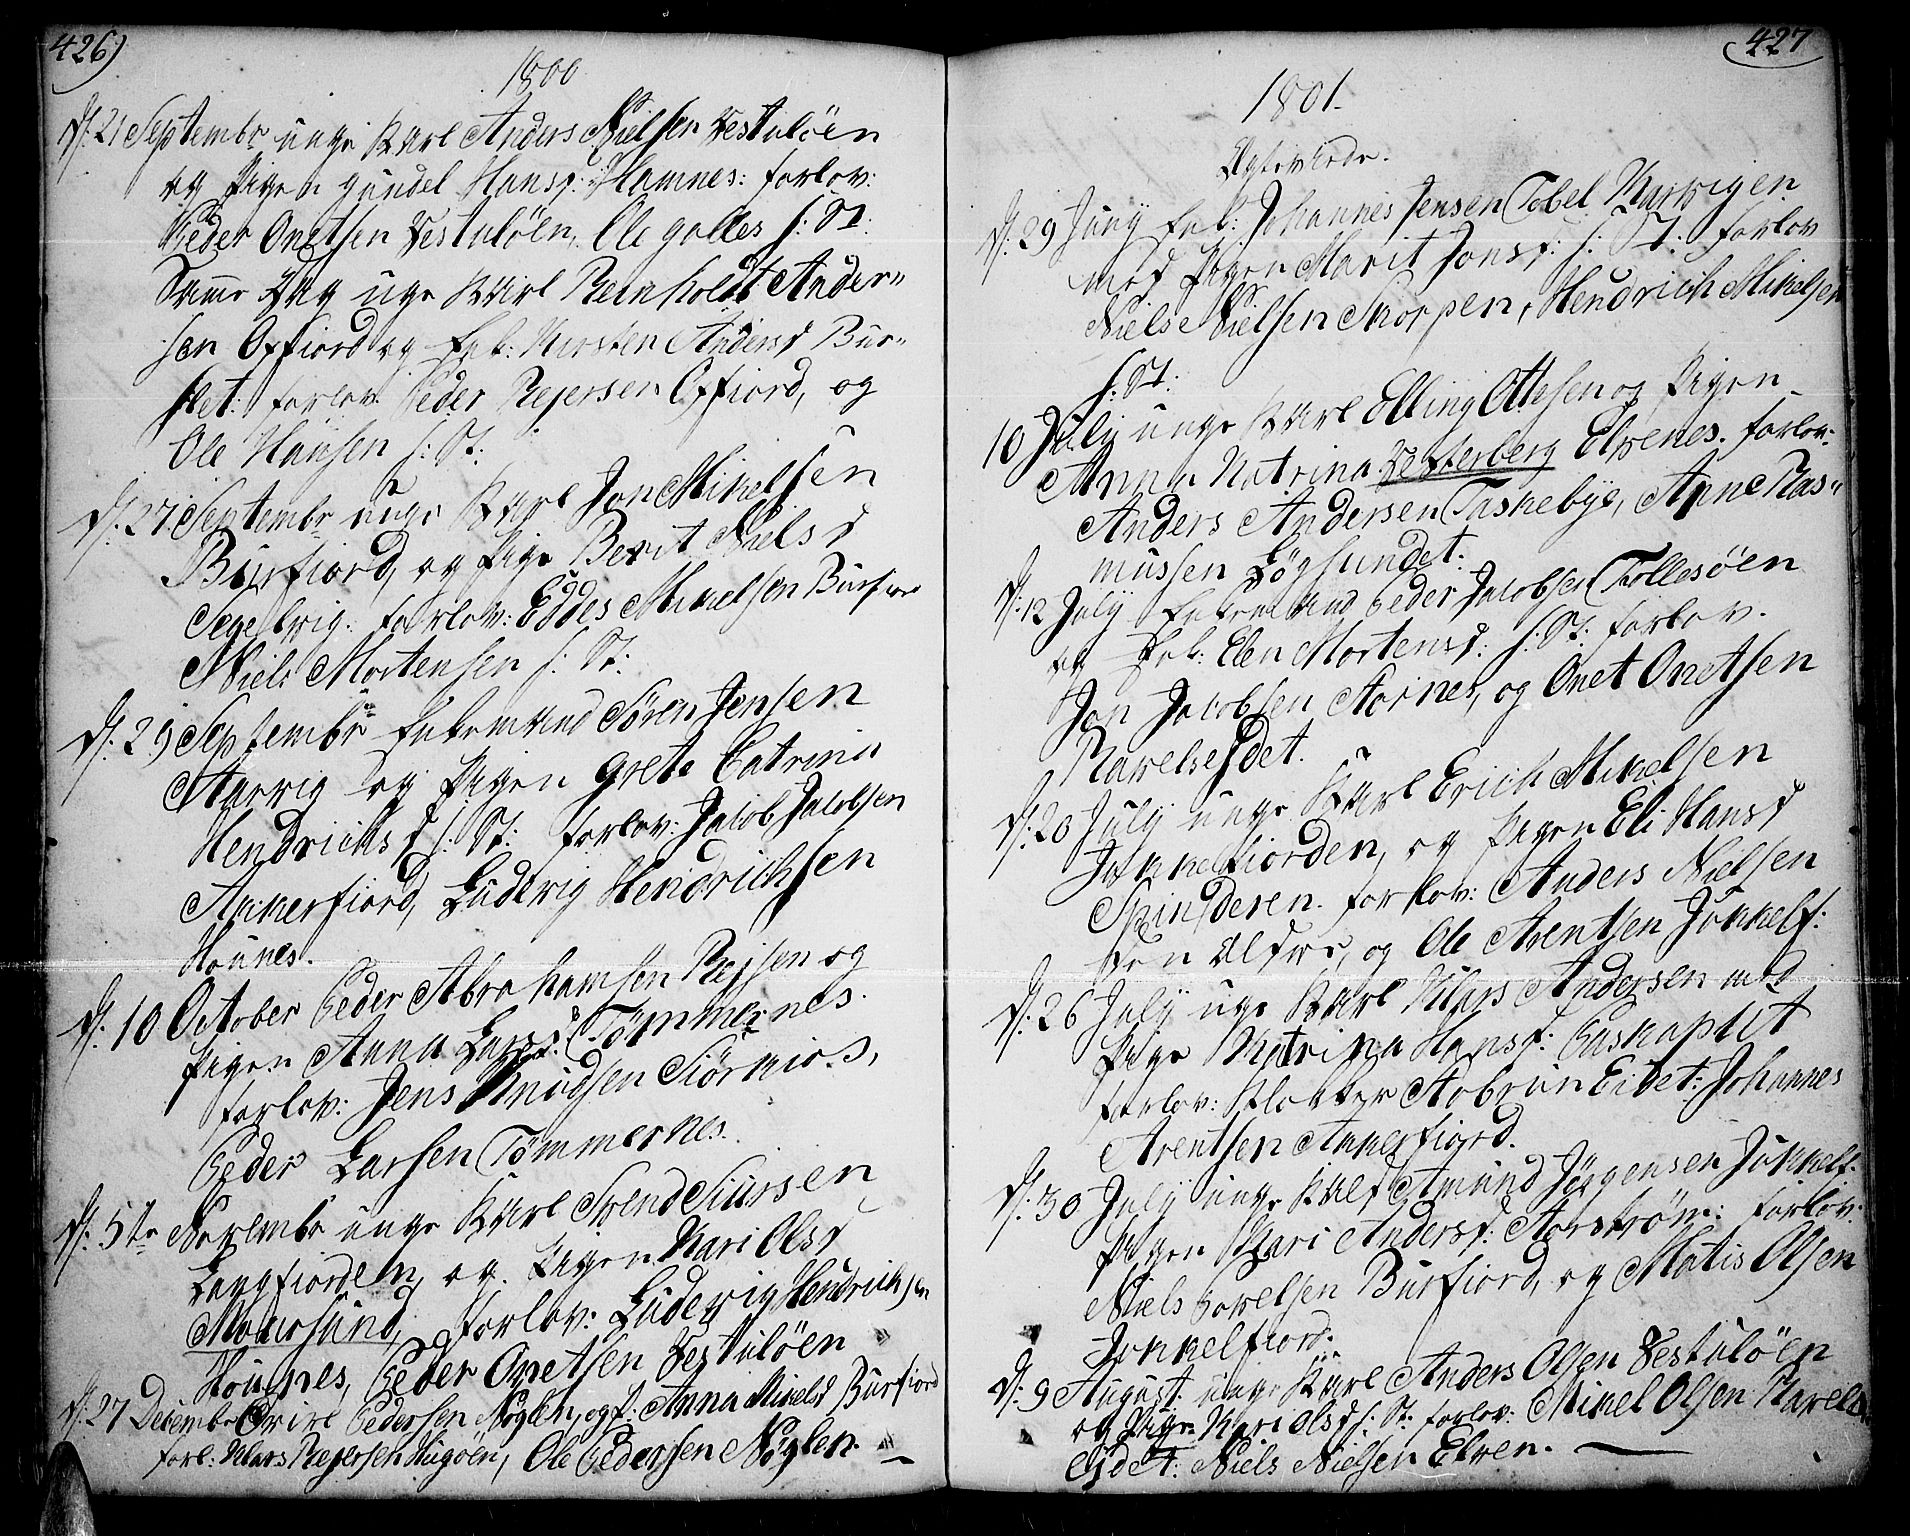 426)
1800
d: 21 Septembr unge Karl Anders Nielsen Vestuløen
og Pigen Gundel Hansd: Hamnes: forlov:
Peder Onetsen Vestuløen, Ole Galles s: St:
Samme Dag uge Karl Reinholdt Ander„
sen Oxfiord og Enk: Kirsten Andersd Bur„
slet: forlov: Peder Rejersen Oxfiord, og
Ole Hansen s: St:
d: 27 Septembr unge Karl Jon Mikelsen
Burfiord, og Pige Berit Nielsd
Segelvig: forlov: Eddes Mikelsen Burfior
Niels Mortensen s: St:
d: 29 Septembr Enkemand Søren Jensen
Starvig og Pigen Grete Catrina
Hendrichsd s: St: forlov: Jacob Jacobsen
Akkerfiord, Ludevig Hendrichsen
Hounes.
d: 10 October Peder Abrahamsen Rejsen og
Pigen Anna Larsd: Tømmernes.
forlov: Jens Knudsen Siørnios,
Peder Larsen Tømmernes.
d: 5te Novembr unge Karl Svend Siursen
Langfiorden, og Pigen Kari Olsd
Maursund, forlov: Ludevig Hendrichsen
Hounes, Peder Onetsen Vestuløen
d: 27 Decembr Pedersen Nøglen, og P: Anna Mikelsd Burfiord
forl: Klars Rejersen Hugøen, Ole Pedersen Nøglen.
427
1801.
Egteviede.
d: 29 Juny Enk: Johannes Jensen Tobel Karvigen
med Pigen Marit Jonsd: s: St: forlov
Niels Nielsen Skorpen, Hendrich Mikelsen
s: St:
10 July unge Karl Elling Ottesen og Pigen
Anna Katrina Vesterberg Elvenes. forlov:
Anders Andersen Taskebye, Arne Ras„
mussen Løgsundet:
d: 12 July Enkemand Peder Jacobsen Follesøen
og Enk: Elen Mortensd: s: St: forlov.
Jon Jacobsen Aarnes, og Onet Onetsen
Ravelsejdet.
d: 20 July unge Karl Erich Mikelsen
Jøkkelfiorden, og Pigen Eli Hansd
Spinderen. forlov: Anders Nielsen
og Ole Arentsen Jøkkelf:
d: 26 July uge Karl Klars Andersen med
Pige Katrina Hansd: Caskaptet
forlov: Klokker Aabrun Eidet: Johannes
Arentsen Akkerfiord.
d: 30 July unge Karl Amund Jørgensen Jøkkelf:
Pigen Kari Andersd: Aarstrøm: forlov:
Niels Povelsen Burfiord, og Matis Olsen
Jøkkelfiord:
d: 9 August unge Karl Anders Olsen Vestuløen
og Pige Kari Olsd s: St: forlov: Mikel Olsen Ravels
ejdet: Niels Nielsen Elven.